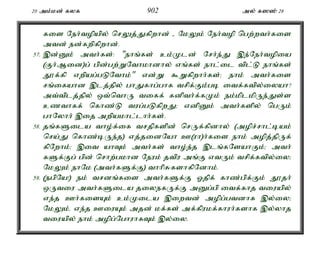 20 அம்மன் கலக 902 அல் கஸஸ் 28
களை நேர்வழியில் செலுத்துகிறான் - மேலும் நேர்வழி பெற்றவர்களை
அவன் நன்கறிகிறான்.
57. இன்னும் அவர்கள்: "நாங்கள் உம்முடன் சேர்ந்து இந்நேர்வழியை
(குர்ஆனை)ப் பின்பற்றுவோமானால் எங்கள் நாட்டை விட்டு நாங்கள்
தூக்கி எறியப்படுவோம்" என்று கூறுகிறார்கள்; நாம் அவர்களை
சங்கையான இடத்தில் பாதுகாப்பாக வசிக்கும்படி வைக்கவில்லையா?
அவ்விடத்தில் ஒவ்வொரு வகைக் கனிவர்க்கமும் நம்மிடமிருந்துள்ள
உணவாகக் கொண்டு வரப்படுகிறது; எனினும் அவர்களில் பெரும்
பாலோர் இதை அறியமாட்டார்கள்.
58. தங்களுடைய வாழ்க்கை வசதிகளின் செருக்கினால் (அழிச்சாட்டியம்
செய்து கொண்டிருந்த) எத்தனையோ ஊ(ரார்)களை நாம் அழித்திருக்
கிறோம்; இவை யாவும் அவர்கள் வாழ்ந்த இடங்களேயாகும்; அவர்
களுக்குப் பின் சொற்பமான நேரம் தவிர அங்கு எவரும் வசிக்கவில்லை;
மேலும் நாமே (அவர்களுக்கு) வாரிசுகளாகினோம்.
59. (நபியே!) நம் வசனங்களை அவர்களுக்கு ஓதிக் காண்பிக்கும் தூதர்
ஒருவரை அவர்களுடைய தலைநகருக்கு அனுப்பி வைக்காத வரையில்
எந்த ஊர்களையும் உம்முடைய இறைவன் அழிப்பவனாக இல்லை;
மேலும், எந்த ஊரையும் அதன் மக்கள் அக்கிரமக்காரர்களாக இல்லாத
வரையில் நாம் அழிப்போராகவும் இல்லை.